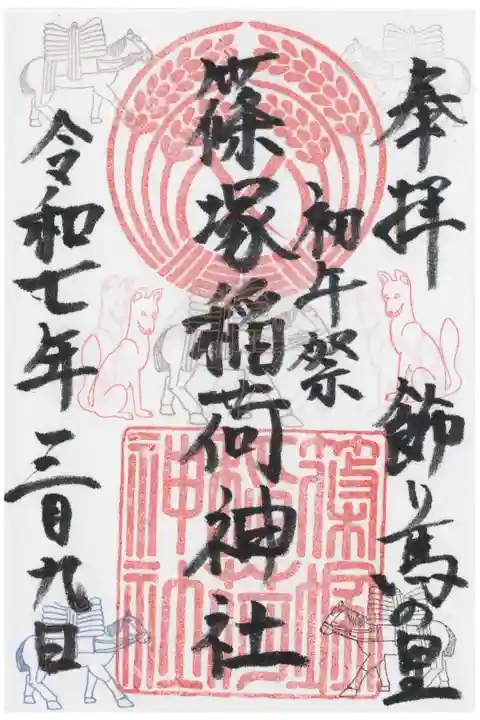 奉拝　飾り馬の里
初午祭
篠塚稲荷神社
令和七年三月九日
篠塚
稲荷
神社